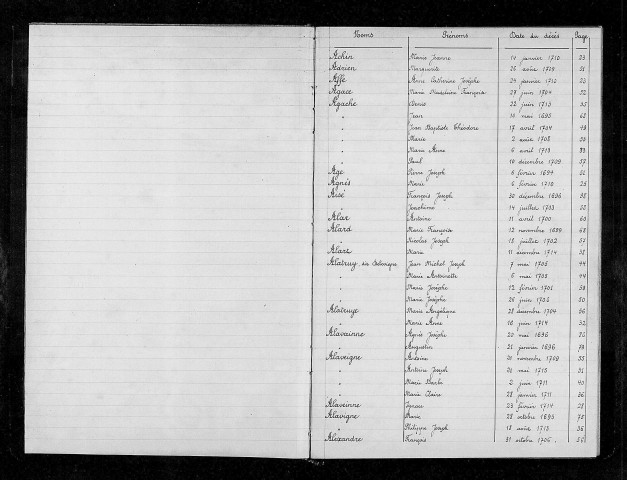 Noms Prénoms Date du décès Page
Achin Marie Jeanne 14 janvier 1710 23
Adrien Marguerite 26 août 1709
Affe Anne Catherine Josèphe 24 janvier 1710 22
Agace Marie Madeleine Françoise 29 juin 1704 52
Agache 22 juin 1715 35
" Jean 10 mai 1695 68
" Jean Baptiste Théodore 17 avril 1704 49
" Marie 2 août 1708
" Marie Anne 6 avril 1713 33
" Paul 10 décembre 1709 57
Age Pierre Joseph 8 février 1694
Agnès Marie 6 février 1710 25
François Joseph 30 décembre 1696 38
" 14 juillet 1703 52
Alar Antoine 11 avril 1700 60
Alard Marie Françoise 12 novembre 1699 68
" Nicolas Joseph 18 juillet 1702 57
Alart Marie 11 décembre 1714 38
Alatruy Jean Michel Joseph 7 mai 1706 44
" Marie Antoinette 6 mai 1708 44
" Marie Josèphe 12 février 1701 59
" Marie Josèphe 26 juin 1706 50
Alatruye Marie Angélique 28 décembre 1704 56
" Marie Anne 16 juin 1714 32
Alaveinne Agnès Josèphe 20 mai 1696 76
" Augustin 21 janvier 1696 79
Alaveigne Antoine 20 novembre 1709 53
" Antoine Joseph 21 mai 1715 31
" Marie 2 juin 1711 40
" Marie Claire 28 janvier 1711 36
Alaveinne Ignace 23 février 1714 28
Alavigne Marie 28 octobre 1695 78
" Philippe Joseph 18 août 1713 36
Alexandre François 31 octobre 1706 56